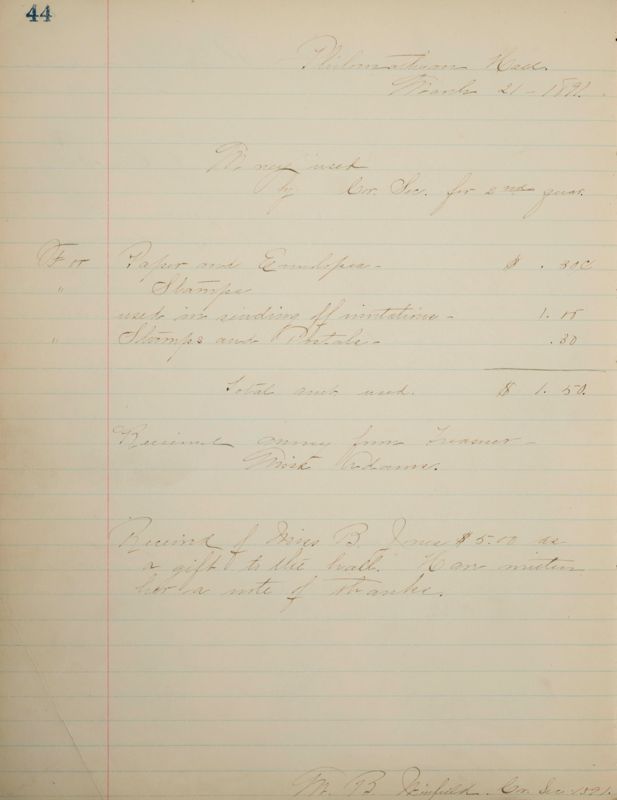 44
Philomathean Hall.
March 21 - 1891.
Money used
by Cor. Sec. for 2nd quar.
For Paper and Envelopes - $ .30c
" Stamps
used in sending off invitations -
" Stamps and Postals - .30
Total amt used. $ 1. 50.
Received money from Treasurer -
Adams.
Received of Miss B. Jones $5.00 as
a gift to the hall. Have written
her a note of thanks.
M. B. Winfield. Cor. Sec. 1891.